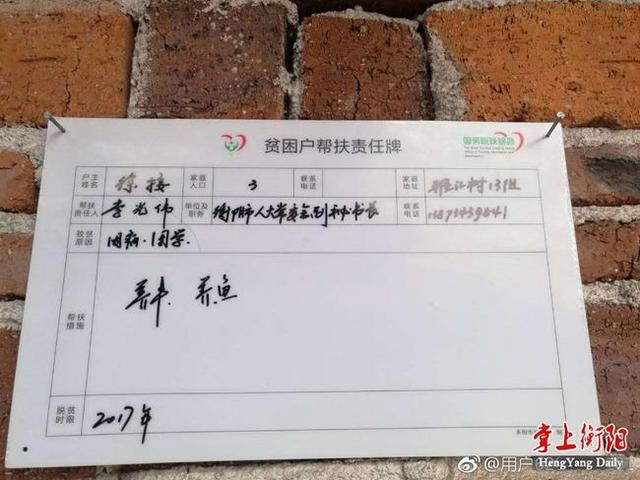 贫困户帮扶责任牌
国务院扶贫办
户主姓名 徐接 家庭人口 3 联系电话 家庭地址 13组
帮扶责任人 李光伟 单位及职务 衡阳市人大常委会副秘书长 联系电话
致贫原因 因病·因学.
帮扶措施 养牛 养鱼
脱贫时限 2017年
掌上衡阳
HengYang Daily
@用户